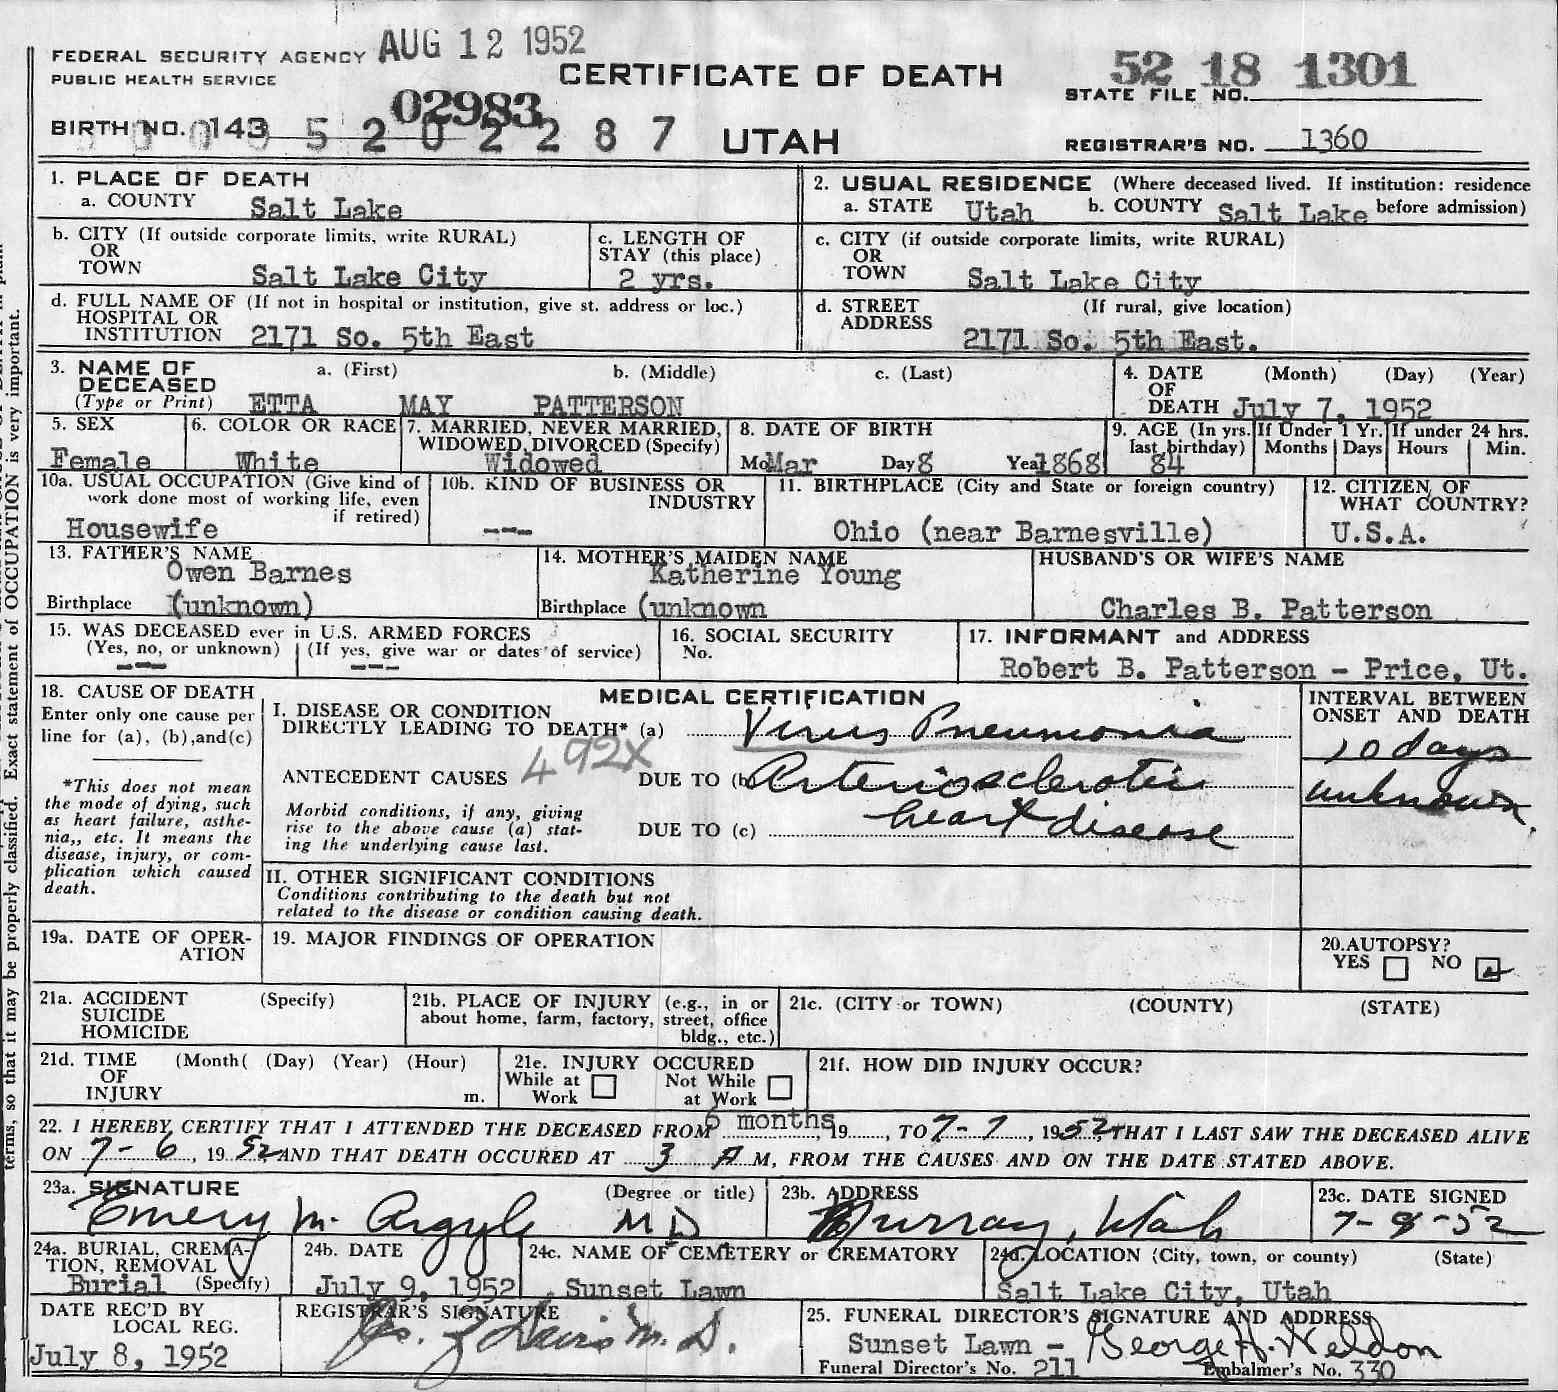 AUG 12 1952
FEDERAL SECURITY AGENCY
PUBLIC HEALTH SERVICE
CERTIFICATE OF DEATH
52 18 1301
STATE FILE NO.
02983
BIRTH NO. 143 5 2 0 2 2 8 7
UTAH
REGISTRAR'S NO. 1360
1. PLACE OF DEATH
a. COUNTY Salt Lake
2. USUAL RESIDENCE (Where deceased lived. If institution: residence before admission)
a. STATE Utah b. COUNTY Salt Lake
b. CITY (If outside corporate limits, write RURAL)
OR
TOWN Salt Lake City
c. LENGTH OF
STAY (this place)
2 yrs.
c. CITY (if outside corporate limits, write RURAL)
OR
TOWN Salt Lake City
d. FULL NAME OF (If not in hospital or institution, give st. address or loc.)
HOSPITAL OR
INSTITUTION 2171 So. 5th East
d. STREET (If rural, give location)
ADDRESS 2171 So. 5th East.
3. NAME OF a. (First) b. (Middle) c. (Last)
DECEASED
(Type or Print) ETTA MAY PATTERSON
4. DATE (Month) (Day) (Year)
OF
DEATH July 7, 1952
5. SEX
Female
6. COLOR OR RACE
White
7. MARRIED, NEVER MARRIED,
WIDOWED, DIVORCED (Specify)
Widowed
8. DATE OF BIRTH
Mo Mar Day 8 Year 1868
9. AGE (In yrs. last birthday)
84
If Under 1 Yr.
Months Days
If under 24 hrs.
Hours Min.
10a. USUAL OCCUPATION (Give kind of
work done most of working life, even
if retired)
Housewife
10b. KIND OF BUSINESS OR
INDUSTRY
---
11. BIRTHPLACE (City and State or foreign country)
Ohio (near Barnesville)
12. CITIZEN OF
WHAT COUNTRY?
U.S.A.
13. FATHER'S NAME
Owen Barnes
Birthplace (unknown)
14. MOTHER'S MAIDEN NAME
Katherine Young
Birthplace (unknown
HUSBAND'S OR WIFE'S NAME
Charles B. Patterson
15. WAS DECEASED ever in U.S. ARMED FORCES
(Yes, no, or unknown) (If yes, give war or dates of service)
--- ---
16. SOCIAL SECURITY
No.
17. INFORMANT and ADDRESS
Robert B. Patterson - Price, Ut.
18. CAUSE OF DEATH
Enter only one cause per
line for (a), (b),and(c)
*This does not mean
the mode of dying, such
as heart failure, asthe-
nia,, etc. It means the
disease, injury, or com-
plication which caused
death.
MEDICAL CERTIFICATION
I. DISEASE OR CONDITION
DIRECTLY LEADING TO DEATH* (a) Virus Pneumonia
492X
ANTECEDENT CAUSES DUE TO (b) Arteriosclerotic
Morbid conditions, if any, giving
rise to the above cause (a) stat-
ing the underlying cause last.
DUE TO (c) heart disease
INTERVAL BETWEEN
ONSET AND DEATH
10 days
unknown.
II. OTHER SIGNIFICANT CONDITIONS
Conditions contributing to the death but not
related to the disease or condition causing death.
19a. DATE OF OPER-
ATION
19. MAJOR FINDINGS OF OPERATION
20.AUTOPSY?
YES NO
21a. ACCIDENT (Specify)
SUICIDE
HOMICIDE
21b. PLACE OF INJURY (e.g., in or
about home, farm, factory, street, office
bldg., etc.)
21c. (CITY or TOWN) (COUNTY) (STATE)
21d. TIME (Month( (Day) (Year) (Hour)
OF
INJURY m.
21e. INJURY OCCURED
While at Work Not While at Work
21f. HOW DID INJURY OCCUR?
22. I HEREBY CERTIFY THAT I ATTENDED THE DECEASED FROM 6 months, 19......, TO 7-7, 1952, THAT I LAST SAW THE DECEASED ALIVE
ON 7-6, 1952, AND THAT DEATH OCCURED AT 3 A M, FROM THE CAUSES AND ON THE DATE STATED ABOVE.
23a. SIGNATURE (Degree or title)
Emery M. Argyle MD
23b. ADDRESS
Murray, Utah
23c. DATE SIGNED
7-8-52
24a. BURIAL, CREMA-
TION, REMOVAL
Burial (Specify)
24b. DATE
July 9, 1952
24c. NAME OF CEMETERY or CREMATORY
Sunset Lawn
24d. LOCATION (City, town, or county) (State)
Salt Lake City, Utah
DATE REC'D BY
LOCAL REG.
July 8, 1952
REGISTRAR'S SIGNATURE
M. D.
25. FUNERAL DIRECTOR'S SIGNATURE AND ADDRESS
Sunset Lawn - George H. Weldon
Funeral Director's No. 211 Embalmer's No. 330
terms, so that it may be properly classified. Exact statement of OCCUPATION is very important.